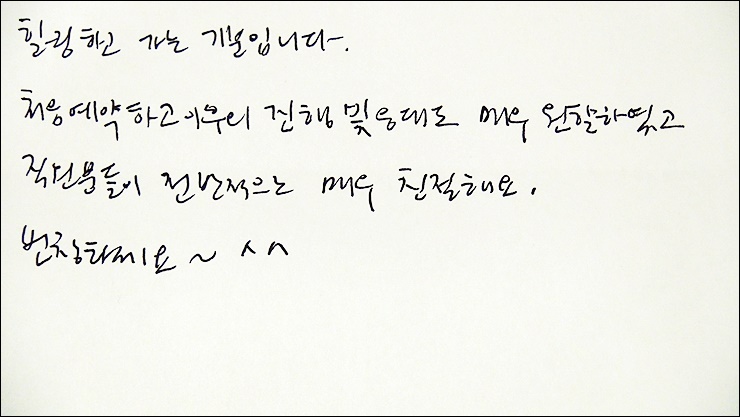 힐링하고 가는 기분입니다.
처음예약하고 마무리 진행 및 응대도 매우 원할하였고
직원분들이 전반적으로 매우 친절해요.
번창하세요~ ^^